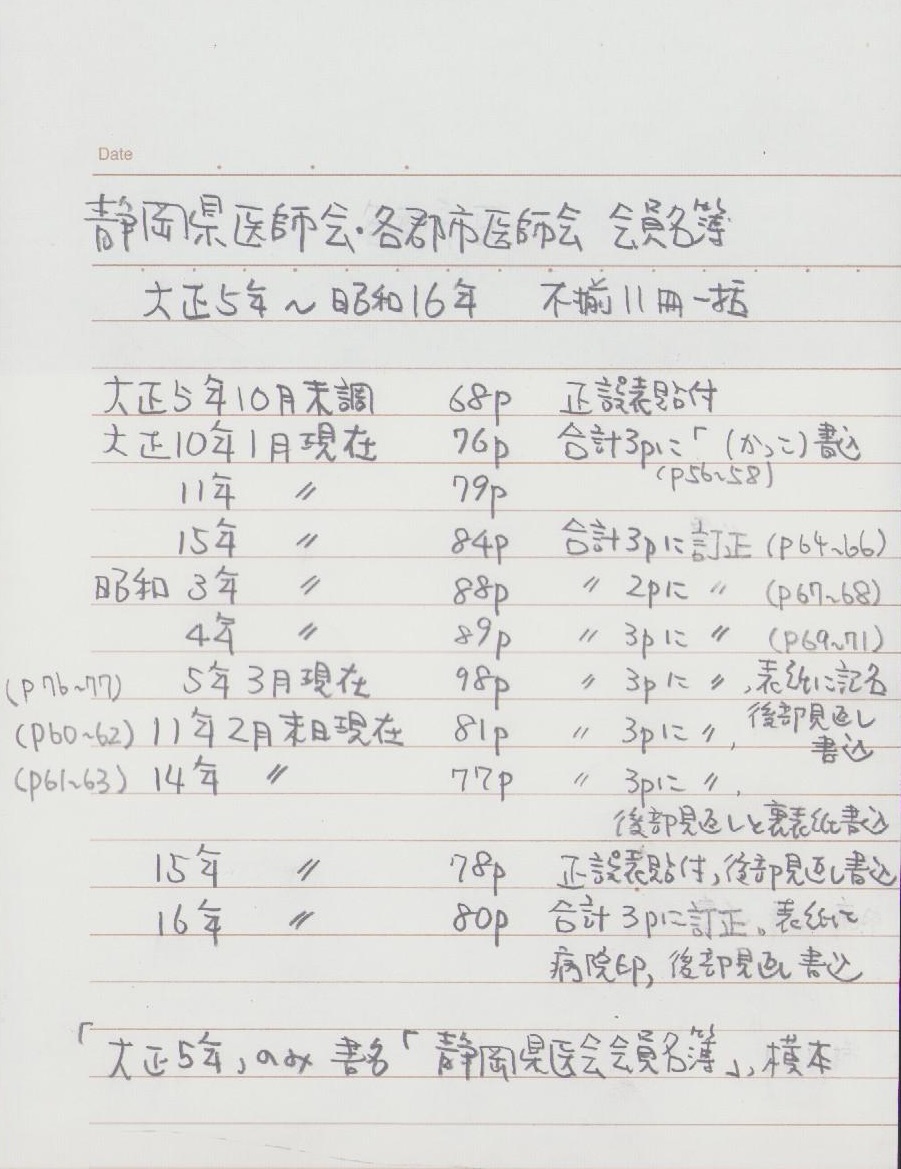 Date
静岡県医師会・各郡市医師会 会員名簿
大正5年～昭和16年 不揃11冊一括
大正5年10月末調 68p 正誤表貼付
大正10年1月現在 76p 合計3pに「(かっこ)書込
(p56~58)
11年 〃 79p
15年 〃 84p 合計3pに訂正 (p64~66)
昭和 3年 〃 88p 〃 2pに 〃 (p67~68)
4年 〃 89p 〃 3pに 〃 (p69~71)
(p76~77) 5年3月現在 98p 〃 3pに 〃,表紙に記名
(p60~62) 11年2月末日現在 81p 〃 3pに〃, 後部見返し
書込
(p61~63) 14年 〃 77p 〃 3pに 〃,
後部見返しと裏表紙書込
15年 〃 78p 正誤表貼付,後部見返し書込
16年 〃 80p 合計3pに訂正。表紙に
病院印, 後部見返し書込
「大正5年」のみ 書名「静岡県医会会員名簿」, 横本